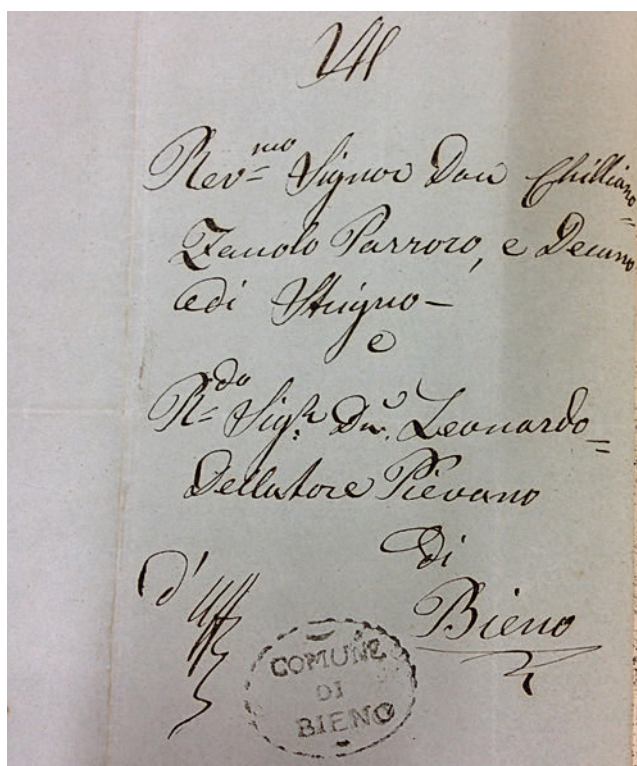 Rev.mo Signor Don Chilliano
Zanolo Parroco, e Decano
di Strigno –
e
R.do Sig.r Dn. Leonardo
Dellatore Pievano
di
Bieno
d'Uff
COMUNE
DI
BIENO